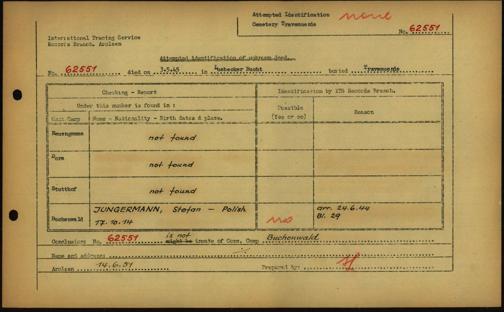 Attempted Identification none
Cemetery Travemuende
No. 62551
International Tracing Service
Records Branch, Arolsen
Attempted identification of unknown dead.
No. 62551 died on 3.5.45 in Luebecker Bucht buried Travemuende
Checking - Report
Identification by ITS Records Branch.
Under this number is found in :
Possible
(Yes or no)
Reason
Conc.Camp
Name - Nationality - Birth dates & place.
Neuengamme
not found
Dora
not found
Stutthof
not found
Buchenwald
JUNGERMANN, Stefan - Polish
17.10.14
no
arr. 24.6.44
Bl. 29
Conclusion: No. 62551 is not
might be inmate of Conc. Camp Buchenwald
Name and address:
14.6.51
Arolsen
Prepared by: